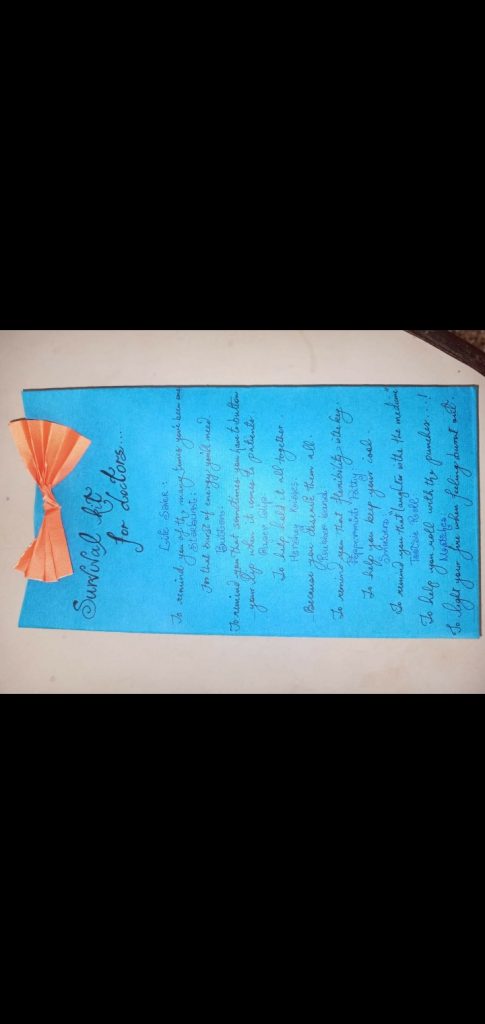 Survival kit
for doctors...
Life Saver:
To remind you of the many times you've been one
Starburst:
For that burst of energy you'll need
Buttons:
To remind you that sometimes you have to button
your lip when it comes to patients
Paper clip:
To help hold it all together.
Hershey Kisses:
Because you deserve them all.
Rubber band:
To remind you that flexibility is the key.
Peppermint Patty
To help you keep your cool.
Snickers
To remind you that laughter is the medium
Tootsie Roll:
To help you roll with the punches...!
Matches
To light your fire when feeling burnt out.